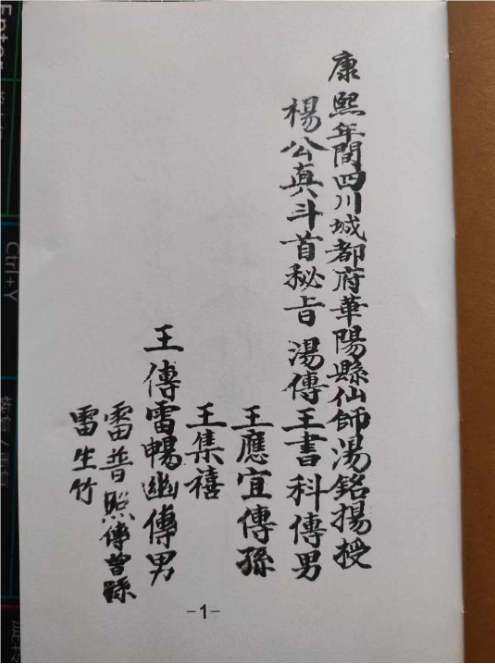 康熙年間四川城都府華陽縣仙師湯銘揚授
楊公真斗首秘旨湯傳王書科傳男
王應宜傳孫
王集禧
王傳雷暢幽傳男
雷普照傳曾孫
雷生竹
-1-
Enter
Ctrl+Y